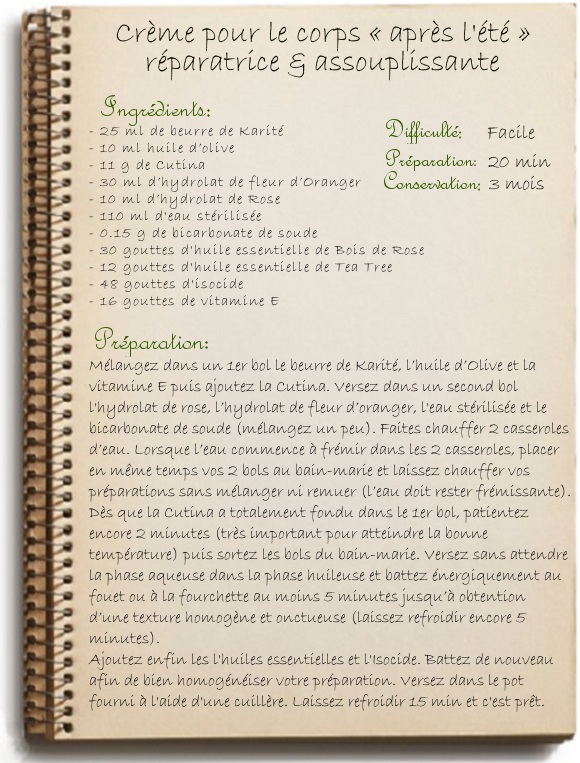 Crème pour le corps « après l'été »
réparatrice & assouplissante
Ingrédients:
- 25 ml de beurre de Karité
- 10 ml huile d'olive
- 11 g de Cutina
- 30 ml d'hydrolat de fleur d'Oranger
- 10 ml d'hydrolat de Rose
- 110 ml d'eau stérilisée
- 0.15 g de bicarbonate de soude
- 30 gouttes d'huile essentielle de Bois de Rose
- 12 gouttes d'huile essentielle de Tea Tree
- 48 gouttes d'isocide
- 16 gouttes de vitamine E
Difficulté: Facile
Préparation: 20 min
Conservation: 3 mois
Préparation:
Mélangez dans un 1er bol le beurre de Karité, l'huile d'Olive et la
vitamine E puis ajoutez la Cutina. Versez dans un second bol
l'hydrolat de rose, l'hydrolat de fleur d'oranger, l'eau stérilisée et le
bicarbonate de soude (mélangez un peu). Faites chauffer 2 casseroles
d'eau. Lorsque l'eau commence à frémir dans les 2 casseroles, placer
en même temps vos 2 bols au bain-marie et laissez chauffer vos
préparations sans mélanger ni remuer (l'eau doit rester frémissante).
Dès que la Cutina a totalement fondu dans le 1er bol, patientez
encore 2 minutes (très important pour atteindre la bonne
température) puis sortez les bols du bain-marie. Versez sans attendre
la phase aqueuse dans la phase huileuse et battez énergiquement au
fouet ou à la fourchette au moins 5 minutes jusqu'à obtention
d'une texture homogène et onctueuse (laissez refroidir encore 5
minutes).
Ajoutez enfin les l'huiles essentielles et l'Isocide. Battez de nouveau
afin de bien homogénéiser votre préparation. Versez dans le pot
fourni à l'aide d'une cuillère. Laissez refroidir 15 min et c'est prêt.